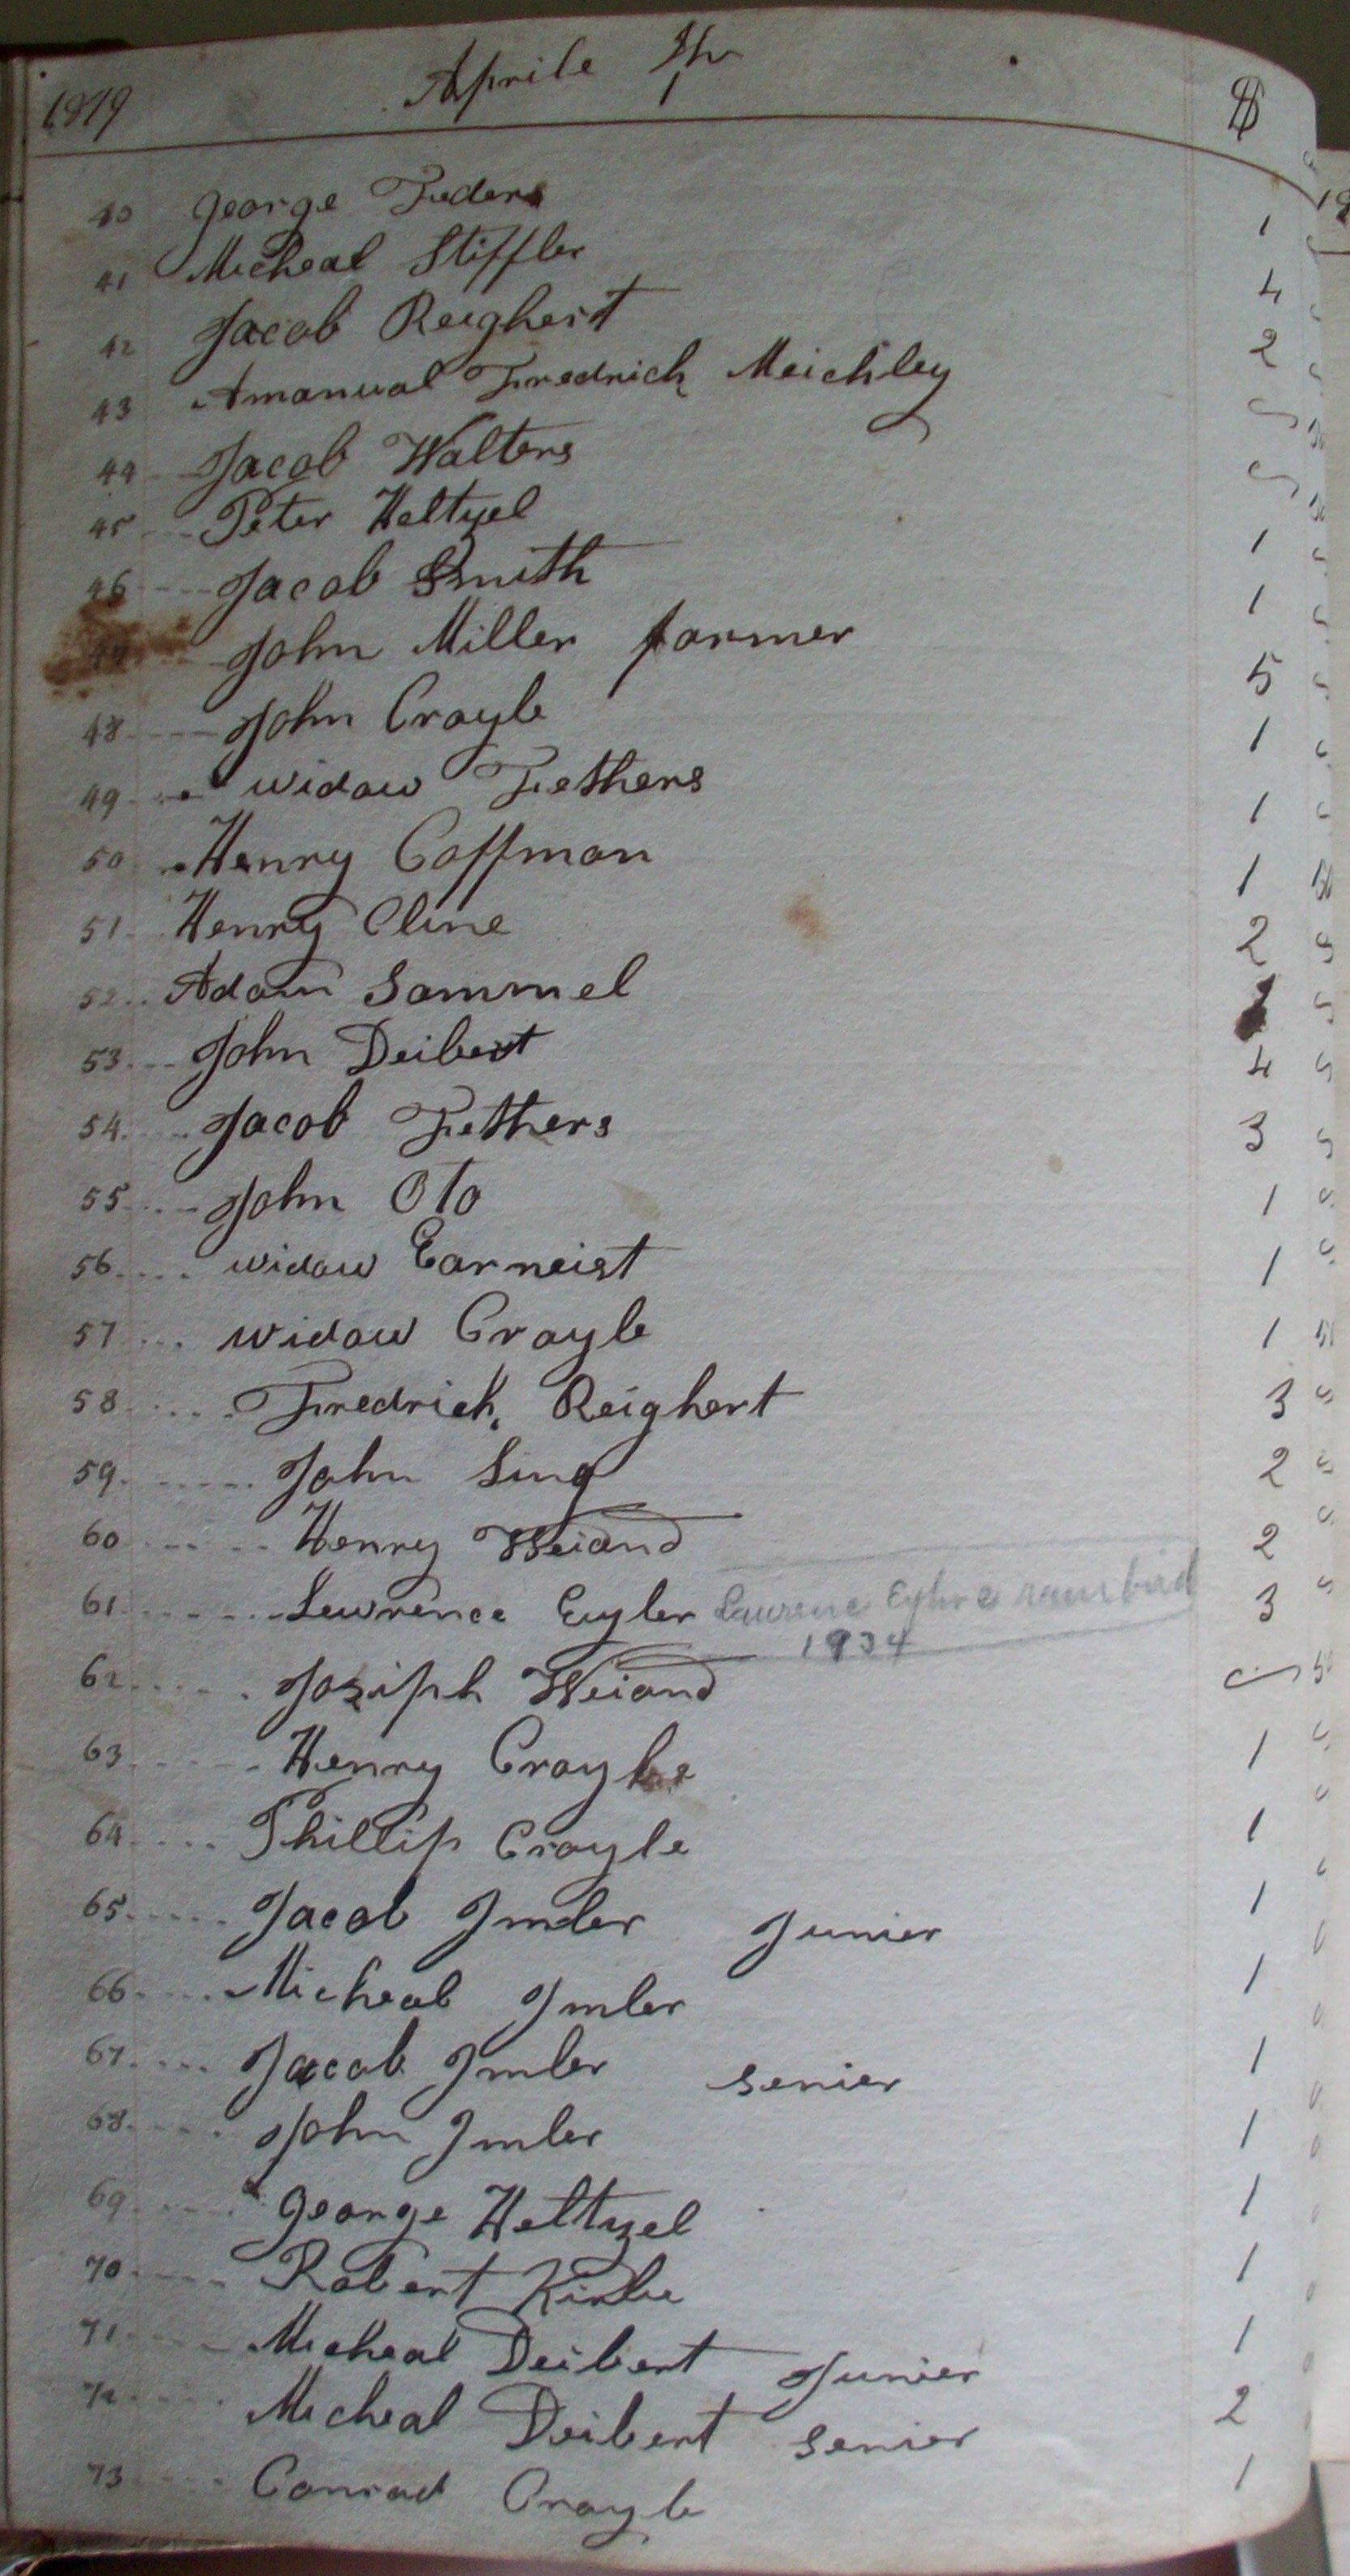 1819 Aprile $
40 George Feders 1
41 Micheal Stiffler 4
42 Jacob Reighert 2
43 Amanual Fredrich Meichley
44 Jacob Walters
45 Peter Heltzel 1
46 Jacob Smith 1
John Miller farmer 5
48 John Crayle 1
49 widow Fethers 1
50 Henry Coffman 1
51 Henry Cline 2
52 Adam Sammel
53 John Deibert 4
54 Jacob Fethers 3
55 John Oto 1
56 widow Earneist 1
57 widow Crayle 1
58 Fredrich Reighert 3
59 John Sing 2
60 Henry Weiand 2
61 Lewrence Eyler 3
1934
62 Josiph Weiand
63 Henry Crayle 1
64 Phillip Crayle 1
65 Jacob Imler Junier 1
66 Micheal Imler 1
67 Jacob Imler senier 1
68 John Imler 1
69 George Heltzel 1
70 Robert 1
71 Micheal Deibert Junier 1
72 Micheal Deibert senier 2
73 Conrad Crayle 1